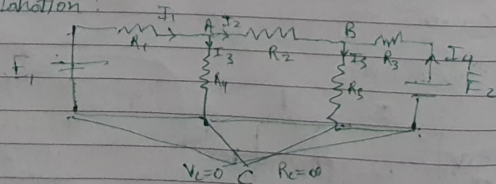 lanation:
I₁ A I₂ B
R₁ R₂ R₃
I₃ I₅ I₄
E₁ R₄ R₅ E₂
V_C=0 C R_C=∞